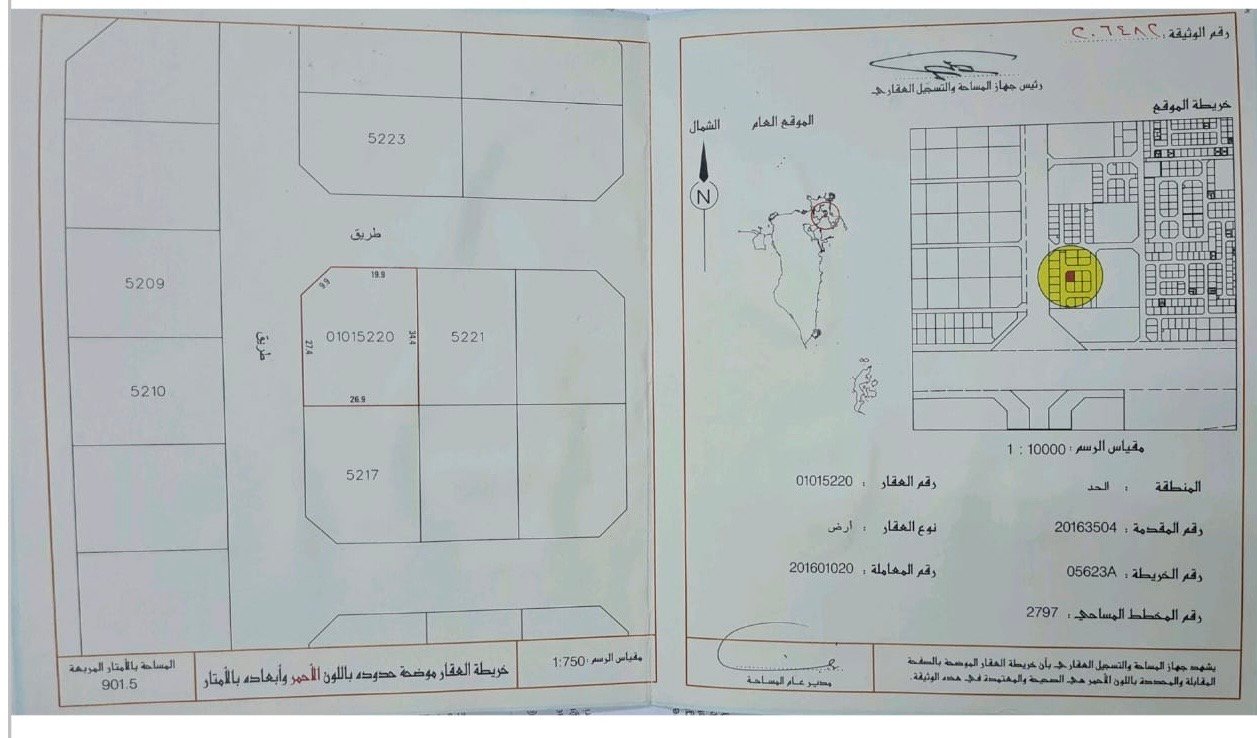 رقم الوثيقة :
رئيس جهاز المساحة والتسجيل العقاري
خريطة الموقع
الموقع العام
الشمال
N
مقياس الرسم : 10000 : 1
المنطقة : الحد
رقم العقار : 01015220
رقم المقدمة : 20163504
نوع العقار : أرض
رقم الخريطة : 05623A
رقم المعاملة : 201601020
رقم المخطط المساحي : 2797
يشهد جهاز المساحة والتسجيل العقاري بأن خريطة العقار الموضحة بالصفحة
المقابلة والمحددة باللون الأحمر هي الصحيحة والمعتمدة في هذه الوثيقة.
مدير عام المساحة
5223
طريق
5209
19.9
9.9
01015220
34.4
27.4
5221
طريق
5210
26.9
5217
مقياس الرسم : 1:750
خريطة العقار موضحة حدوده باللون الأحمر وأبعاده بالأمتار
المساحة بالأمتار المربعة
901.5